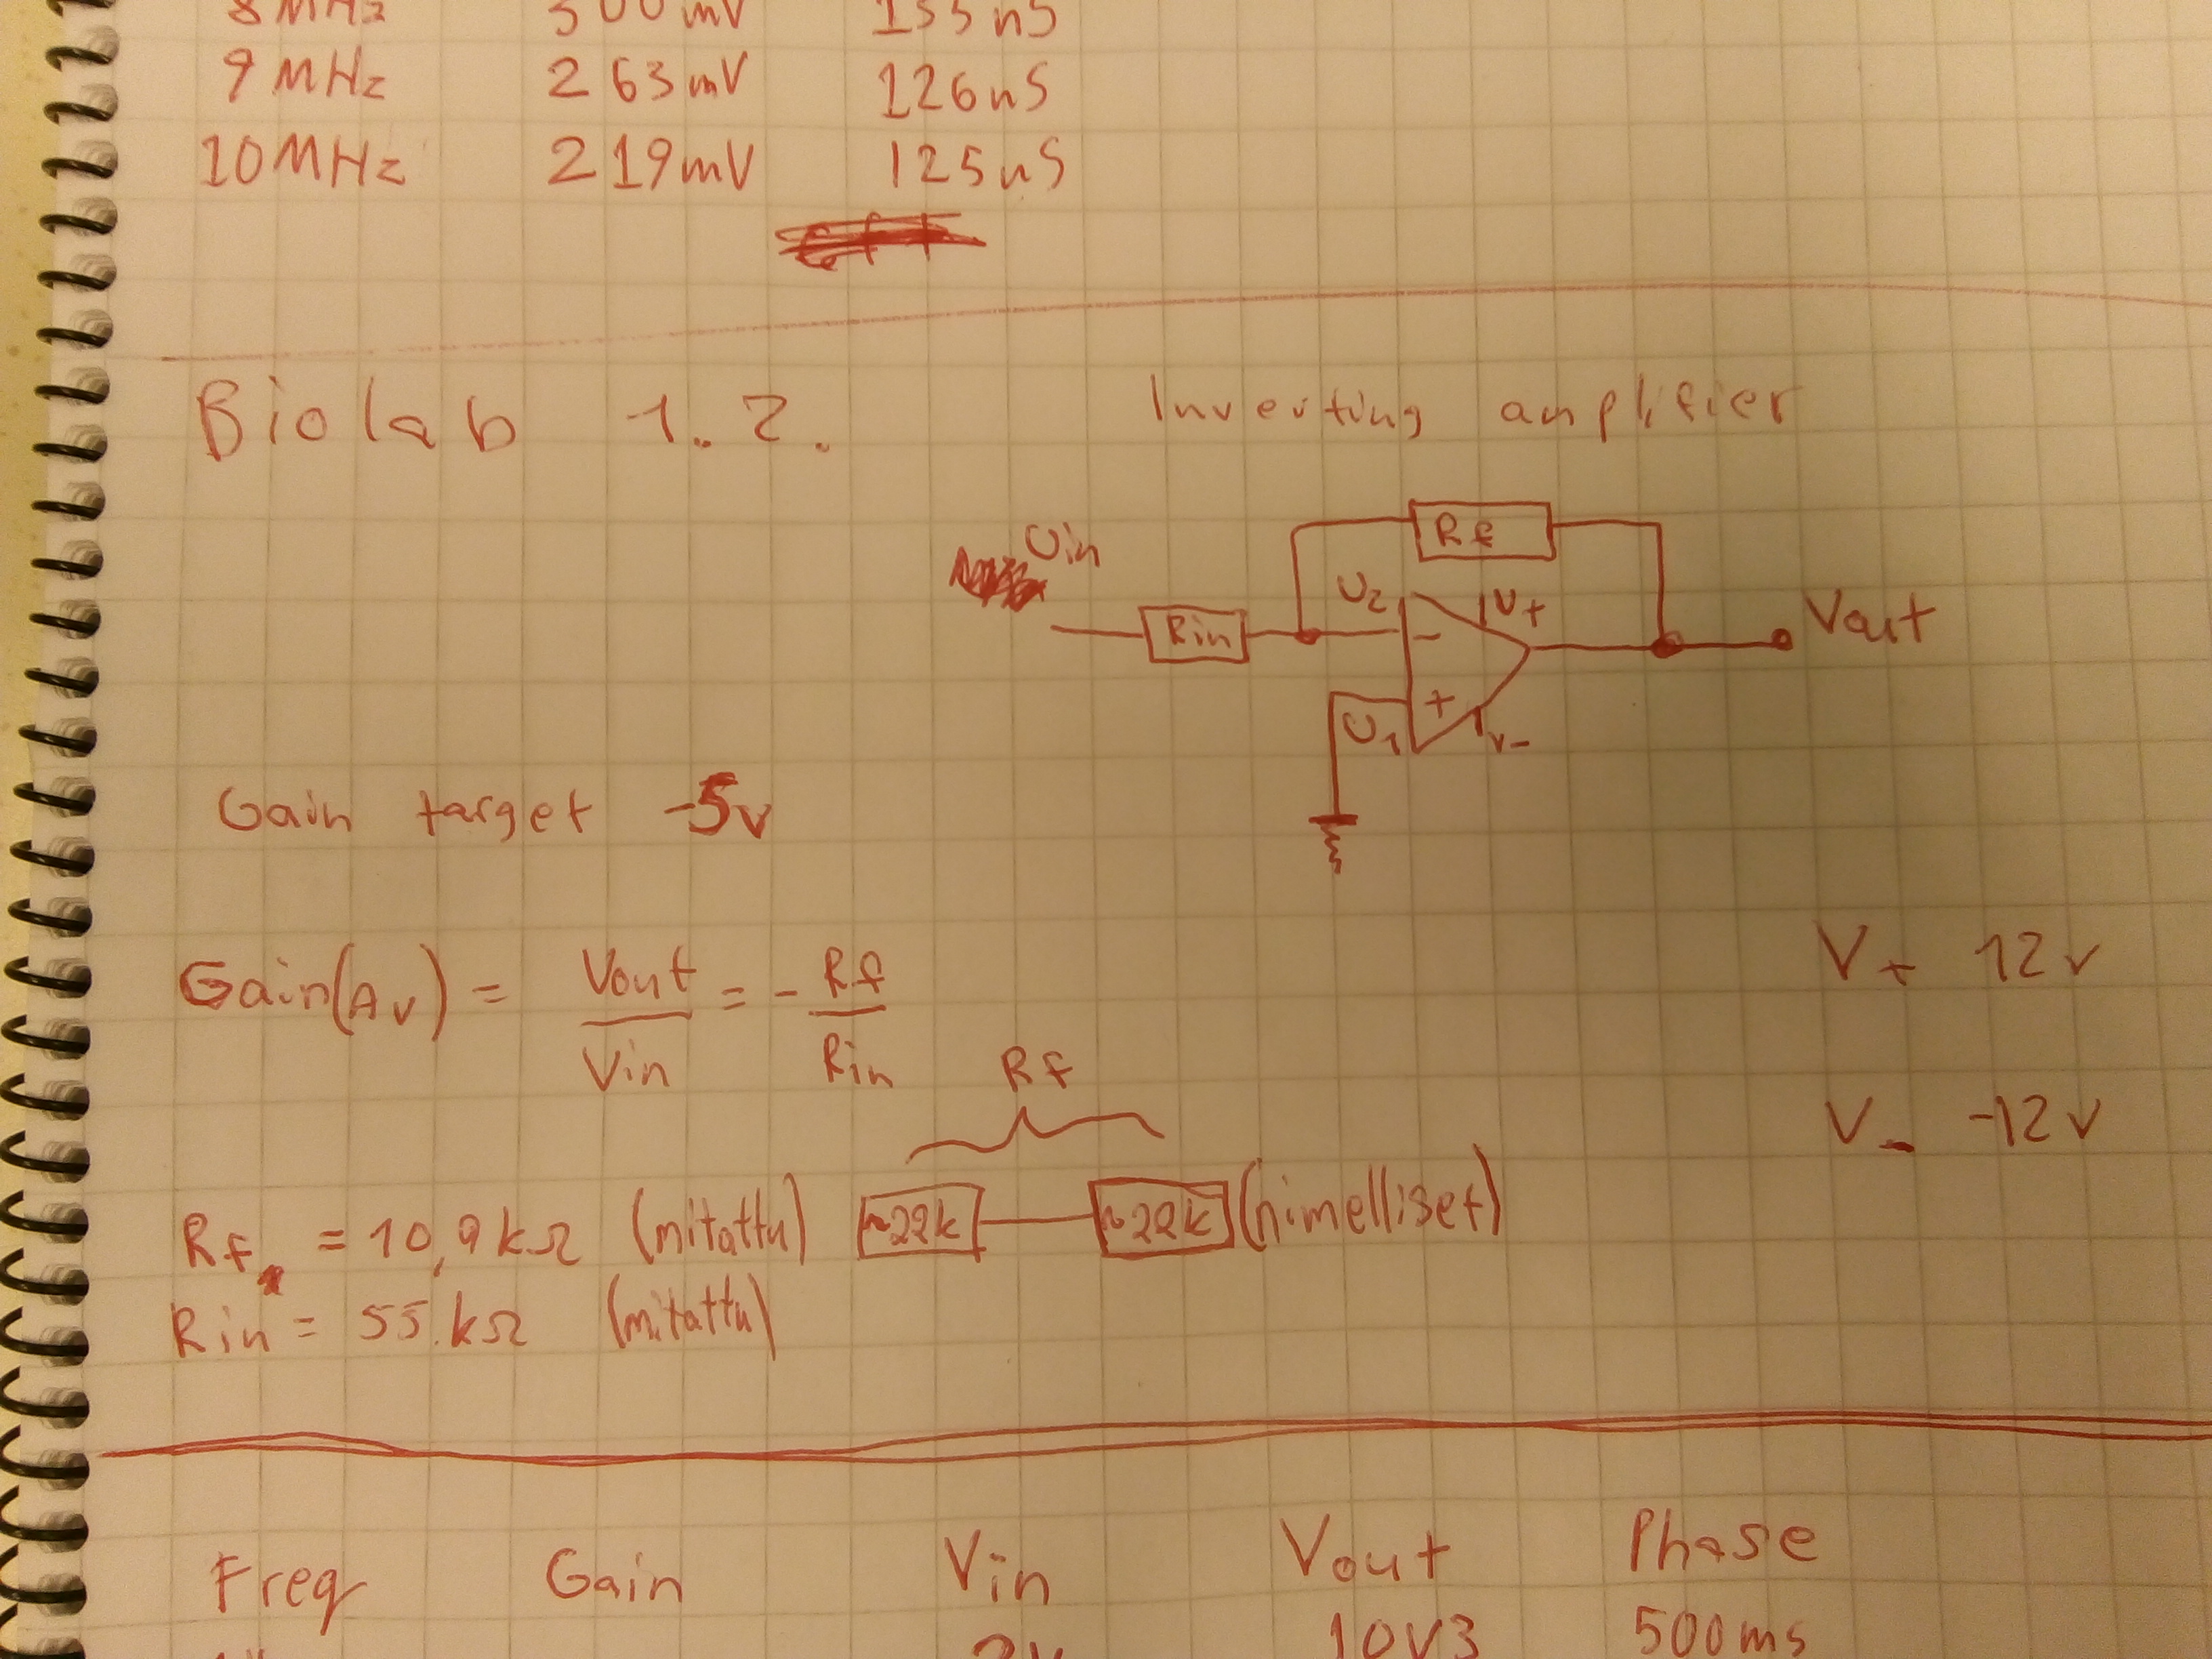 8 MHz 300 mV 133 nS
9 MHz 263 mV 126 nS
10 MHz 219 mV 125 nS
Biolab 1.2. Inverting amplifier
Uin
Rf
U2
V+
Rin
-
Vout
+
U1
V-
Gain target -5v
Gain(Av) = Vout/Vin = - Rf/Rin
V+ 12v
V- -12v
Rf
Rf = 10,9 kΩ (mitattu) ~22k ~22k (nimelliset)
Rin = 55.kΩ (mitattu)
Freq Gain Vin Vout Phase
2v 10V3 500ms